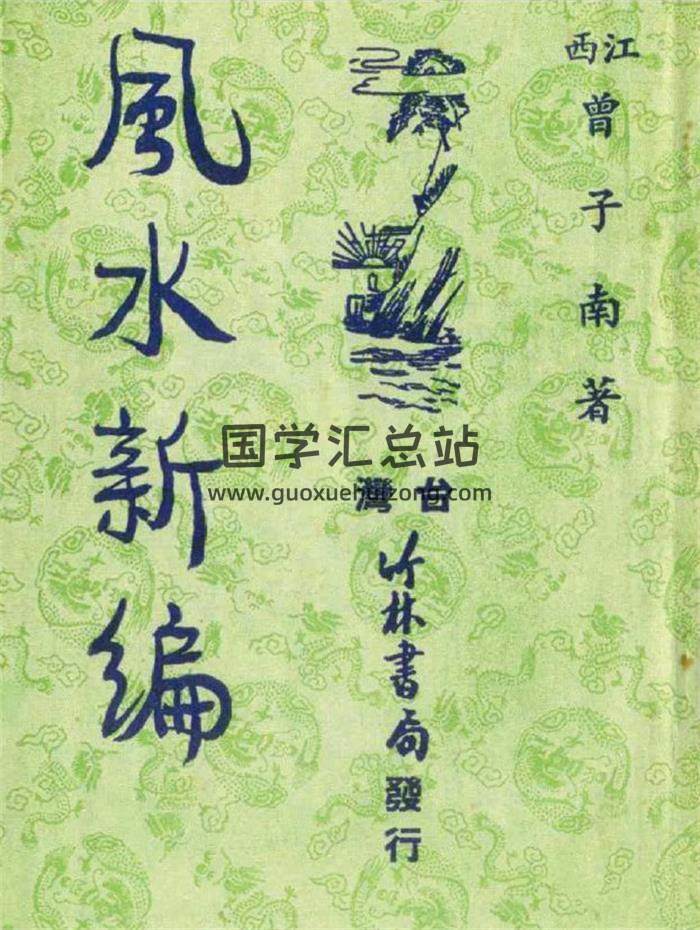 江西
曾子南著
台灣
竹林書局發行
風水新編
国学汇总站
www.guoxuehuizong.com